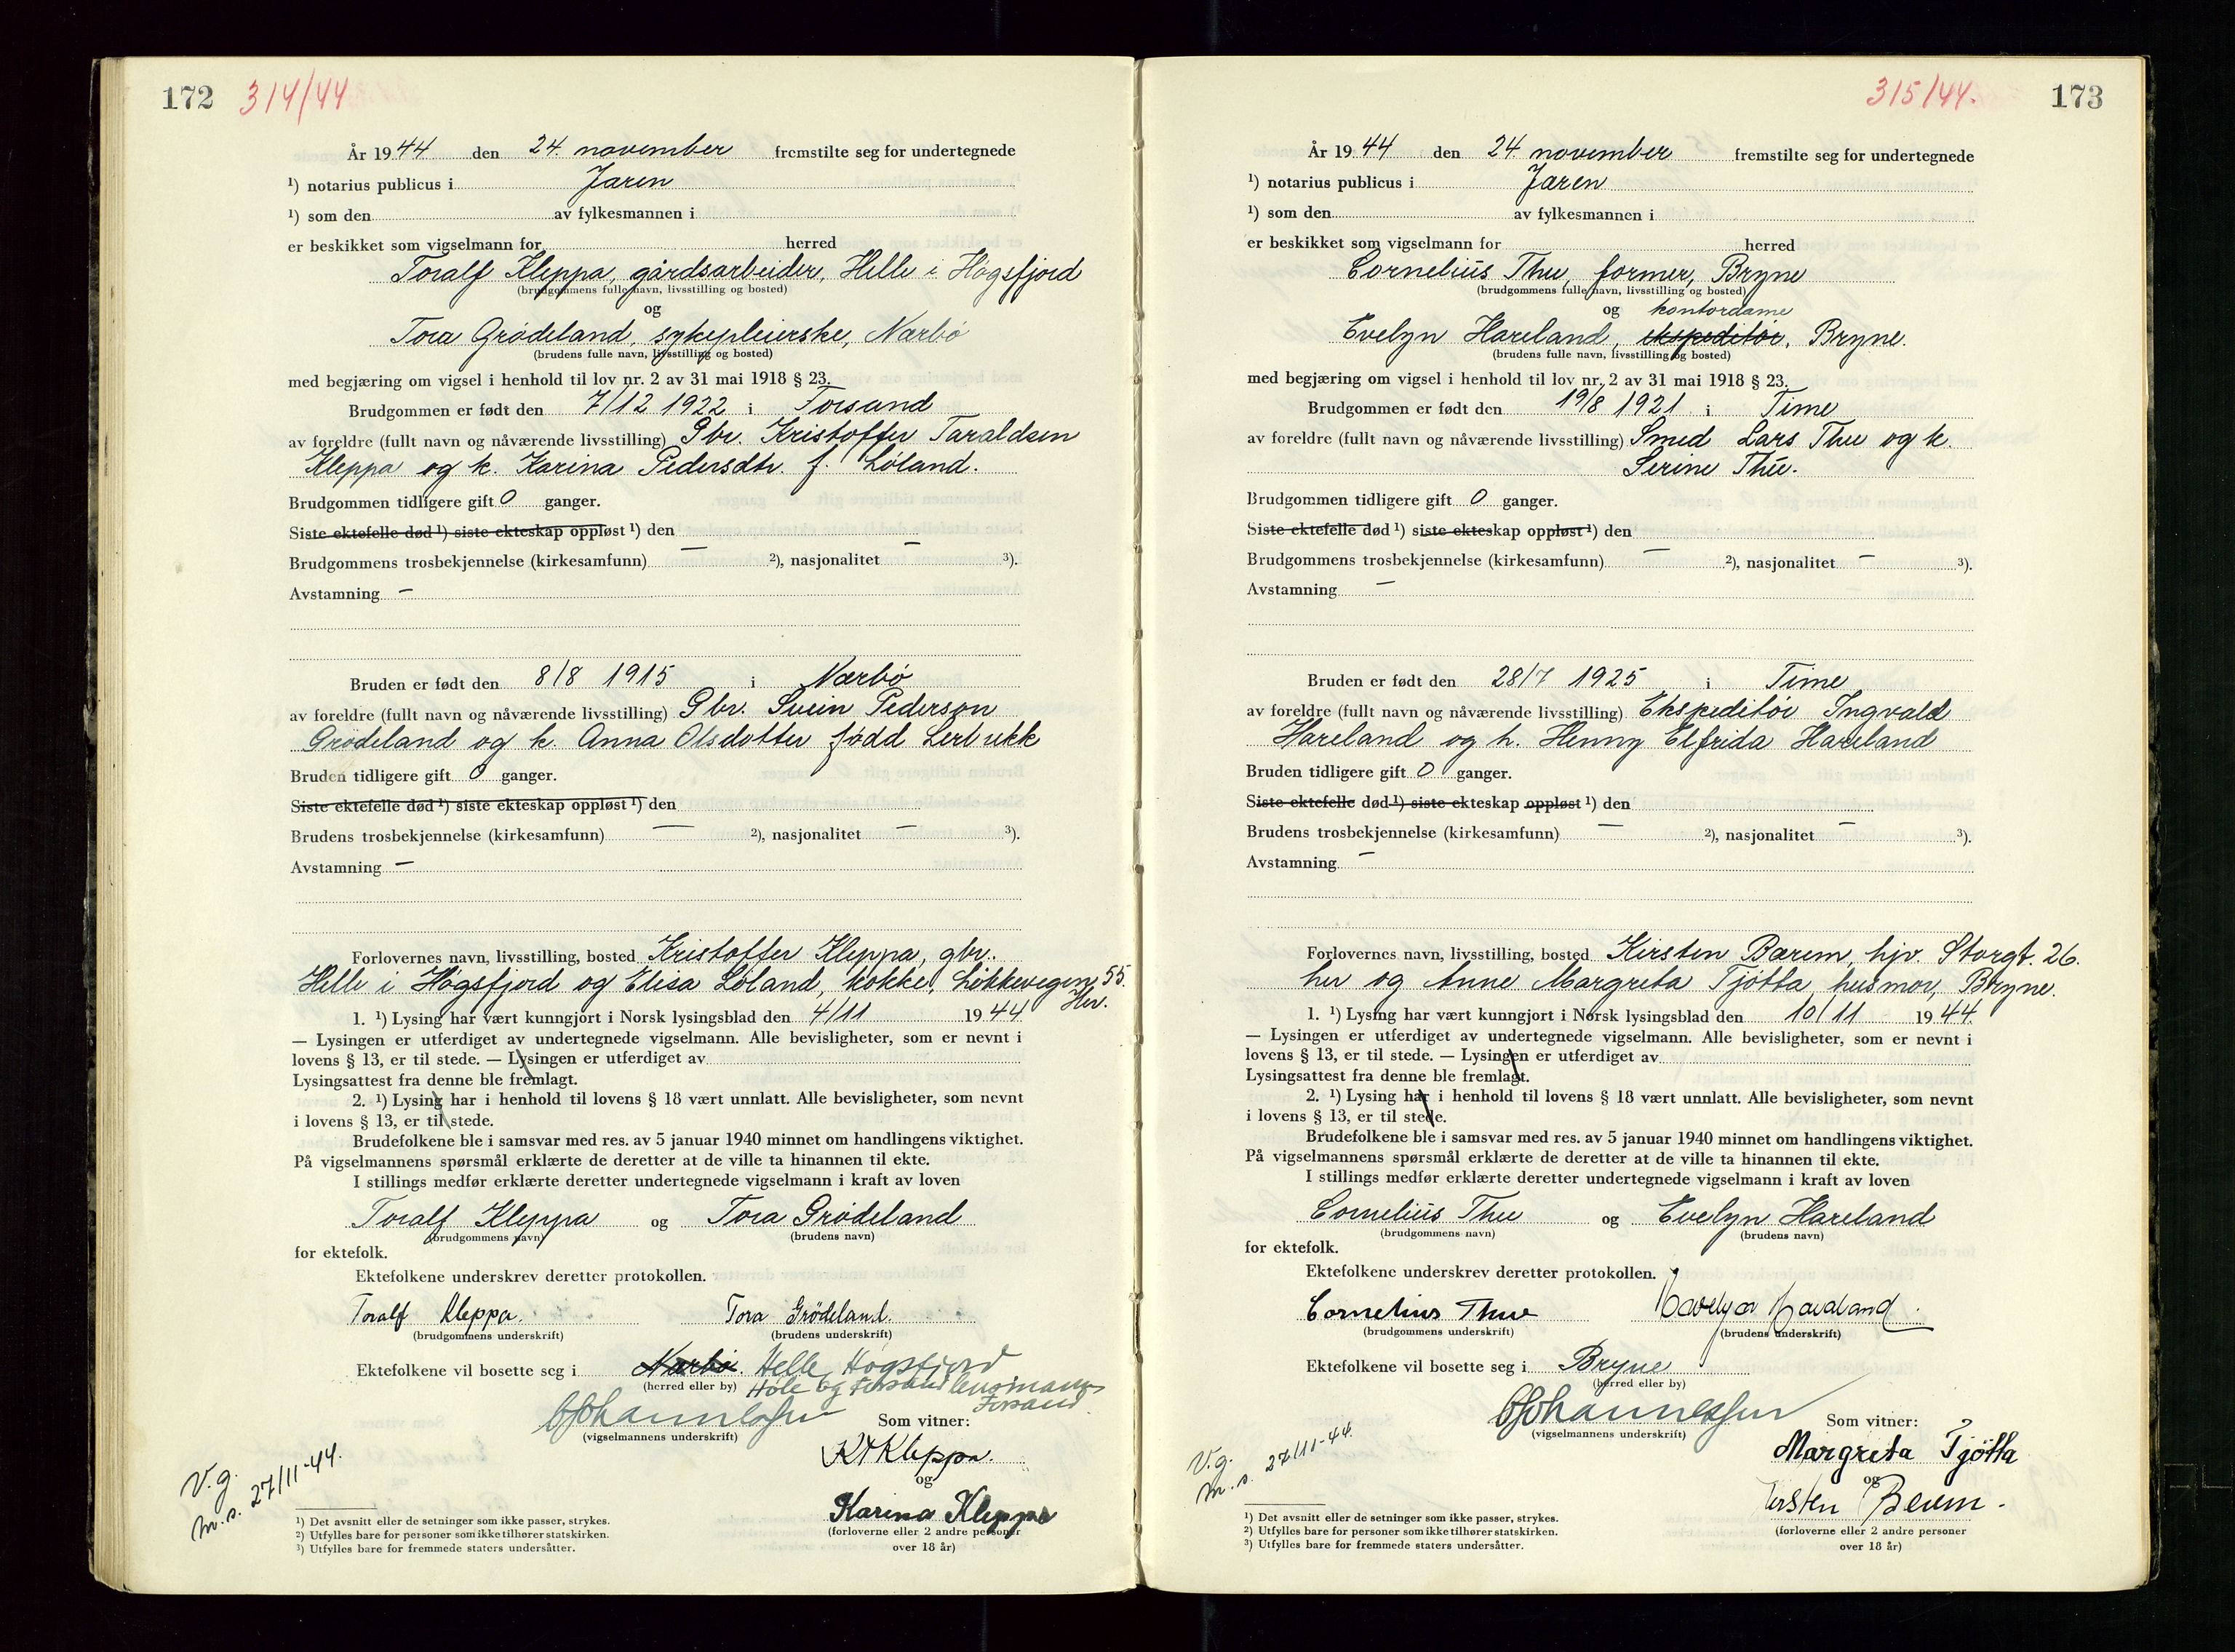 172 314/44
År 1944 den 24. november fremstilte seg for undertegnede
¹) notarius publicus i Jæren
¹) som den av fylkesmannen i
er beskikket som vigselmann for herred
Toralf Kleppa, gårdsarbeider, Helle i Høgsfjord
(brudgommens fulle navn, livsstilling og bosted)
og
Tora Grødeland, sykepleierske, Nærbø
(brudens fulle navn, livsstilling og bosted)
med begjæring om vigsel i henhold til lov nr. 2 av 31 mai 1918 § 23.
Brudgommen er født den 7/12 1922 i Forsand
av foreldre (fullt navn og nåværende livsstilling) Gbr. Kristoffer Taraldsen
Kleppa og k. Karina Pedersdtr. f. Løland.
Brudgommen tidligere gift 0 ganger.
Siste ektefelle død ¹) siste ekteskap oppløst ¹) den
Brudgommens trosbekjennelse (kirkesamfunn) — ²), nasjonalitet — ³).
Avstamning —
Bruden er født den 8/8 1915 i Nærbø
av foreldre (fullt navn og nåværende livsstilling) Gbr. Svein Pederson
Grødeland og k. Anna Olsdotter fødd Lerbrekk
Bruden tidligere gift 0 ganger.
Siste ektefelle død ¹) siste ekteskap oppløst ¹) den
Brudens trosbekjennelse (kirkesamfunn) — ²), nasjonalitet — ³).
Avstamning —
Forlovernes navn, livsstilling, bosted Kristoffer Kleppa, gbr.
Helle i Høgsfjord og Elisa Løland, kokke, Løkkevegen 55.
Her.
1. ¹) Lysing har vært kunngjort i Norsk lysingsblad den 4/11 1944
— Lysingen er utferdiget av undertegnede vigselmann. Alle bevisligheter, som er nevnt i
lovens § 13, er til stede. — Lysingen er utferdiget av
Lysingsattest fra denne ble fremlagt.
2. ¹) Lysing har i henhold til lovens § 18 vært unnlatt. Alle bevisligheter, som nevnt
i lovens § 13, er til stede.
Brudefolkene ble i samsvar med res. av 5 januar 1940 minnet om handlingens viktighet.
På vigselmannens spørsmål erklærte de deretter at de ville ta hinannen til ekte.
I stillings medfør erklærte deretter undertegnede vigselmann i kraft av loven
Toralf Kleppa og Tora Grødeland
(brudgommens navn) (brudens navn)
for ektefolk.
Ektefolkene underskrev deretter protokollen.
Toralf Kleppa. Tora Grödeland.
(brudgommens underskrift) (brudens underskrift)
Ektefolkene vil bosette seg i Nærbø. Helle, Høgsfjord
(herred eller by) Høle og Forsand lensmanns
Forsand
(vigselmannens underskrift) Som vitner:
K T Kleppa.
og
Karina Kleppa
(forloverne eller 2 andre personer
over 18 år)
V.g.
m.s. 27/11-44.
¹) Det avsnitt eller de setninger som ikke passer, strykes.
²) Utfylles bare for personer som ikke tilhører statskirken.
³) Utfylles bare for fremmede staters undersåtter.
315/44. 173
År 1944 den 24. november fremstilte seg for undertegnede
¹) notarius publicus i Jæren
¹) som den av fylkesmannen i
er beskikket som vigselmann for herred
Cornelius Thu, former, Bryne
(brudgommens fulle navn, livsstilling og bosted)
og kontordame
Evelyn Hareland, ekspeditør, Bryne.
(brudens fulle navn, livsstilling og bosted)
med begjæring om vigsel i henhold til lov nr. 2 av 31 mai 1918 § 23.
Brudgommen er født den 19/8 1921 i Time
av foreldre (fullt navn og nåværende livsstilling) Smed Lars Thu og k.
Serine Thu.
Brudgommen tidligere gift 0 ganger.
Siste ektefelle død ¹) siste ekteskap oppløst ¹) den
Brudgommens trosbekjennelse (kirkesamfunn) — ²), nasjonalitet — ³).
Avstamning —
Bruden er født den 28/7 1925 i Time
av foreldre (fullt navn og nåværende livsstilling) Ekspeditør Ingvald
Hareland og h. Henny Elfrida Hareland
Bruden tidligere gift 0 ganger.
Siste ektefelle død ¹) siste ekteskap oppløst ¹) den
Brudens trosbekjennelse (kirkesamfunn) — ²), nasjonalitet — ³).
Avstamning —
Forlovernes navn, livsstilling, bosted Kirsten Bærem, hjv. Storgt. 26.
her og Anne Margreta Tjøtta husmor, Bryne.
1. ¹) Lysing har vært kunngjort i Norsk lysingsblad den 10/11 1944.
— Lysingen er utferdiget av undertegnede vigselmann. Alle bevisligheter, som er nevnt i
lovens § 13, er til stede. — Lysingen er utferdiget av
Lysingsattest fra denne ble fremlagt.
2. ¹) Lysing har i henhold til lovens § 18 vært unnlatt. Alle bevisligheter, som nevnt
i lovens § 13, er til stede.
Brudefolkene ble i samsvar med res. av 5 januar 1940 minnet om handlingens viktighet.
På vigselmannens spørsmål erklærte de deretter at de ville ta hinannen til ekte.
I stillings medfør erklærte deretter undertegnede vigselmann i kraft av loven
Cornelius Thu og Evelyn Hareland
(brudgommens navn) (brudens navn)
for ektefolk.
Ektefolkene underskrev deretter protokollen.
Cornelius Thue Evelyn Haveland.
(brudgommens underskrift) (brudens underskrift)
Ektefolkene vil bosette seg i Bryne
(herred eller by)
(vigselmannens underskrift) Som vitner:
Margreta Tjötta
og
Kirsten Berem.
(forloverne eller 2 andre personer
over 18 år)
V.g.
m.s. 27/11-44.
¹) Det avsnitt eller de setninger som ikke passer, strykes.
²) Utfylles bare for personer som ikke tilhører statskirken.
³) Utfylles bare for fremmede staters undersåtter.